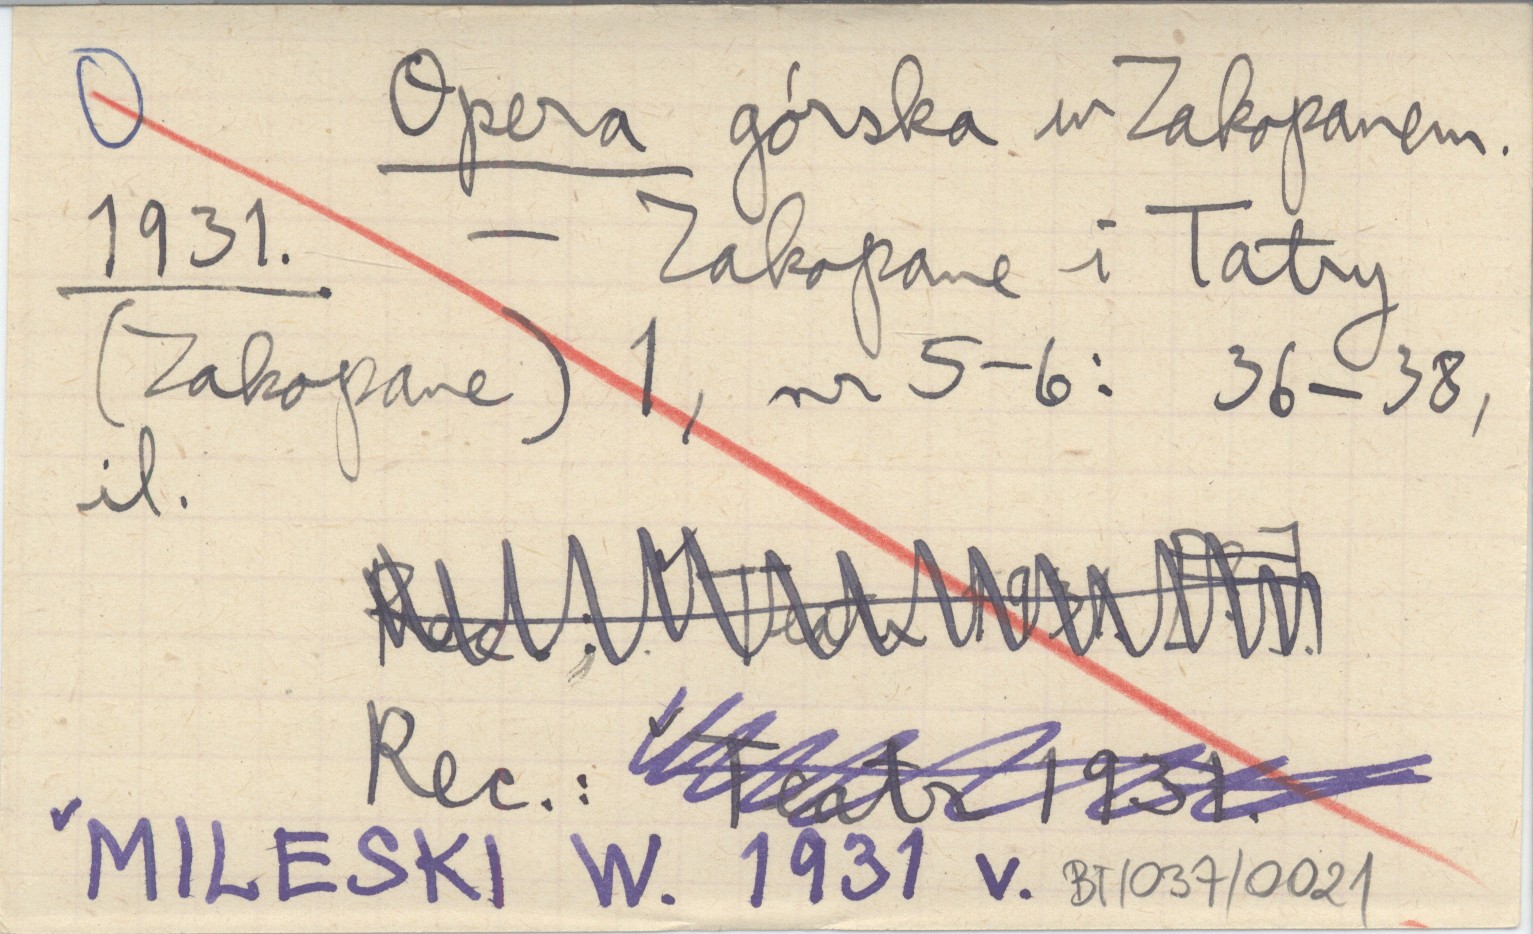 O Opera górska w Zakopanem.
1931. — Zakopane i Tatry
(Zakopane) 1, nr 5-6: 36-38,
il.
Rec.: Teatr 1931.
Rec.: Teatr 1931.
MILESKI W. 1931 v. BT/037/0021